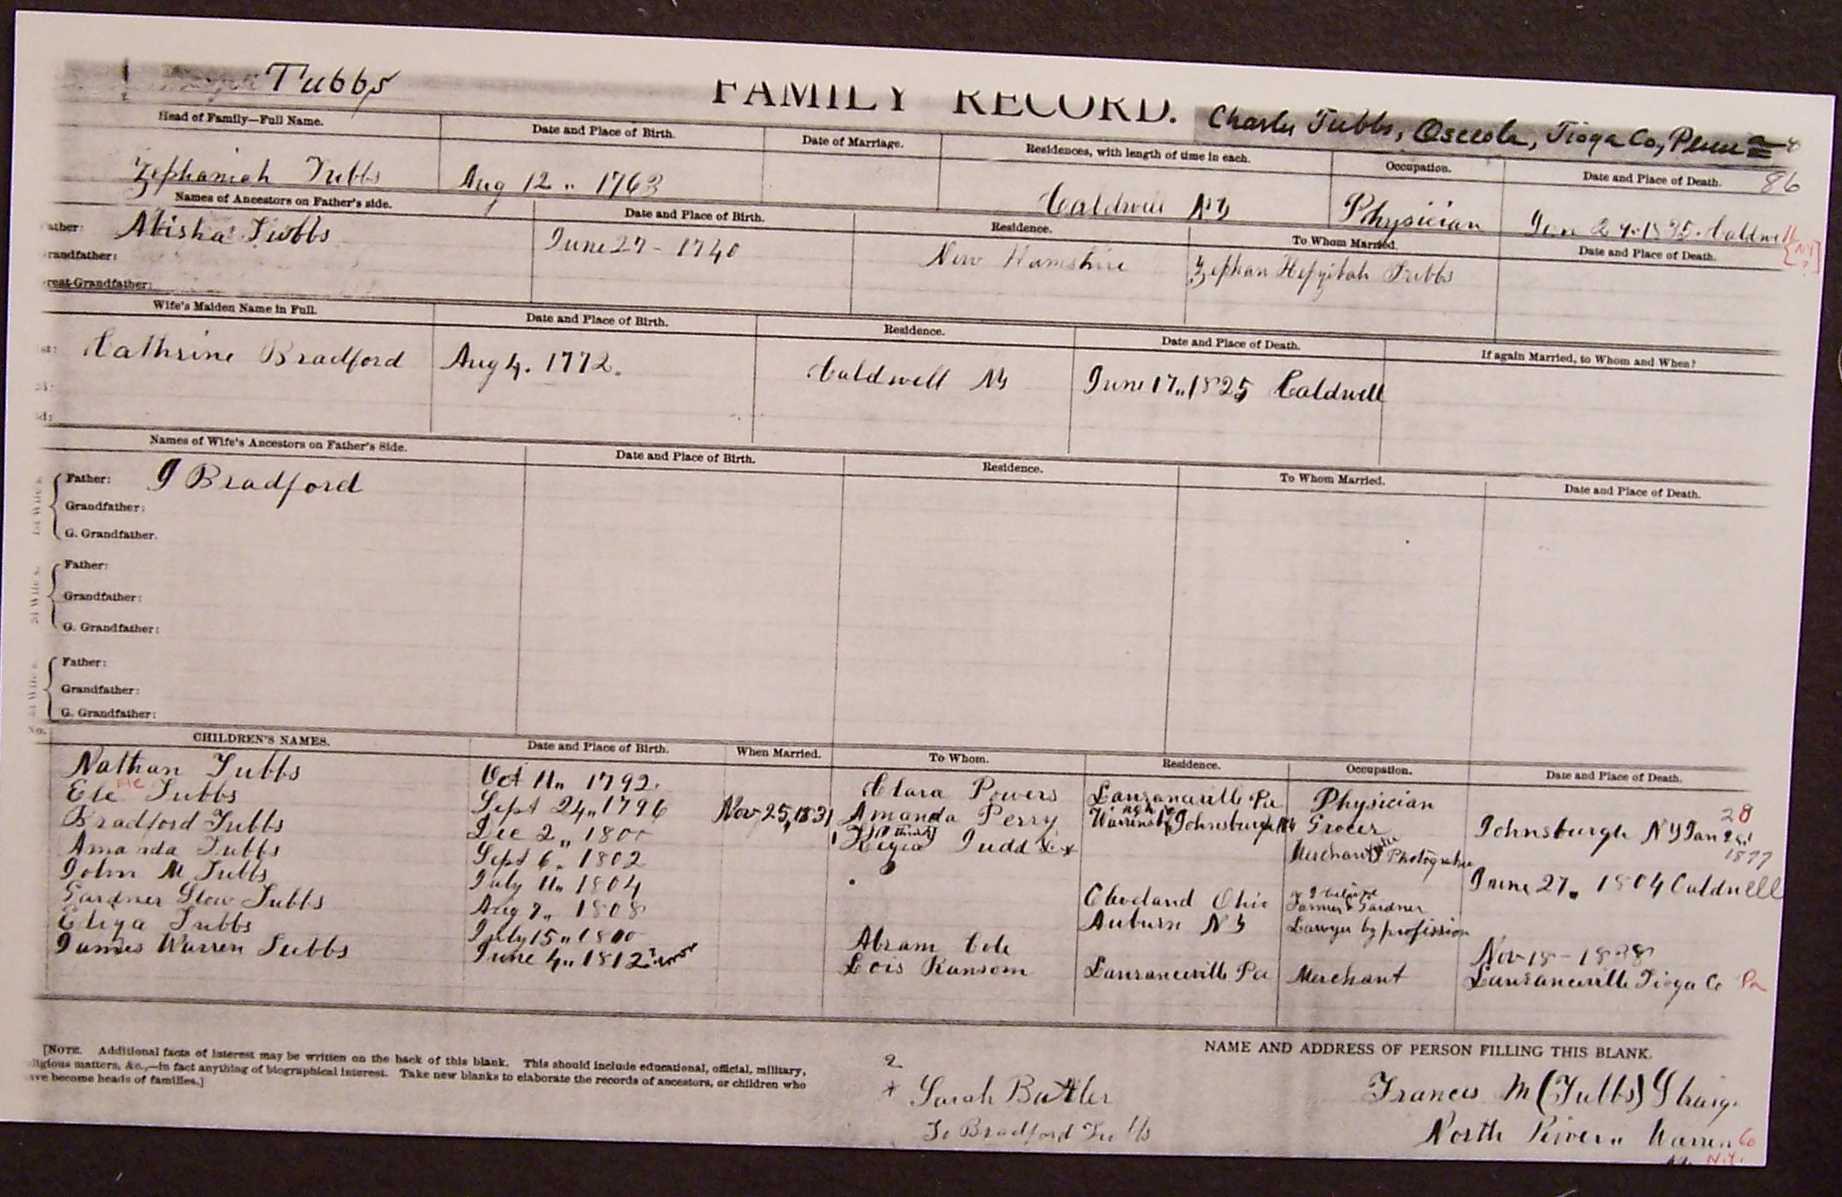 Tubbs
FAMILY RECORD.
Charles Tubbs, Osceola, Tioga Co, Penna
86
Head of Family—Full Name. Date and Place of Birth. Date of Marriage. Residences, with length of time in each. Occupation. Date and Place of Death.
Zephaniah Tubbs Aug 12 " 1763 Caldwell NY Physician
Names of Ancestors on Father's side. Date and Place of Birth. Residence. To Whom Married. Date and Place of Death.
ather: Abisha Tubbs June 27 - 1740 New Hamshire Zephan Hepzibah Tubbs
randfather:
reat-Grandfather:
Wife's Maiden Name in Full. Date and Place of Birth. Residence. Date and Place of Death. If again Married, to Whom and When?
Cathrine Bradford Aug 4. 1772. Caldwell NY June 17 " 1825 Caldwell
Names of Wife's Ancestors on Father's Side. Date and Place of Birth. Residence. To Whom Married. Date and Place of Death.
Father: J Bradford
Grandfather:
G. Grandfather.
Father:
Grandfather:
G. Grandfather:
Father:
Grandfather:
G. Grandfather:
No. CHILDREN'S NAMES. Date and Place of Birth. When Married. To Whom. Residence. Occupation. Date and Place of Death.
Nathan Tubbs Oct 11 " 1792. Clara Powers Lawranceville Pa Physician
Ele Tubbs Sept 24 " 1796 Nov 25, 1831 Amanda Perry Johnsburgh Grocer Johnsburgh NY Jan 28 1877
Bradford Tubbs Dec 2 " 1800 Judd Merchant Photographer
Amanda Tubbs Sept 6 " 1802
John M Tubbs July 11 " 1804 June 27 " 1804 Caldwell
Gardner Stow Tubbs Aug 7 " 1808 Cleveland Ohio Farmer & Gardner
Eliza Tubbs July 15 " Auburn NY Lawyer by profission
James Warren Tubbs June 4 " 1812 Abram Cole Nov 18 -
Lois Ransom Lawranceville Pa Merchant Lawranceville Tioga Co Pa
[NOTE. Additional facts of interest may be written on the back of this blank. This should include educational, official, military,
ligious matters, &c.,—in fact anything of biographical interest. Take new blanks to elaborate the records of ancestors, or children who
ave become heads of families.]
NAME AND ADDRESS OF PERSON FILLING THIS BLANK.
2
* Sarah Butler
To Bradford Tubbs
Frances M (Tubbs)
North River " Warren Co
N.Y.